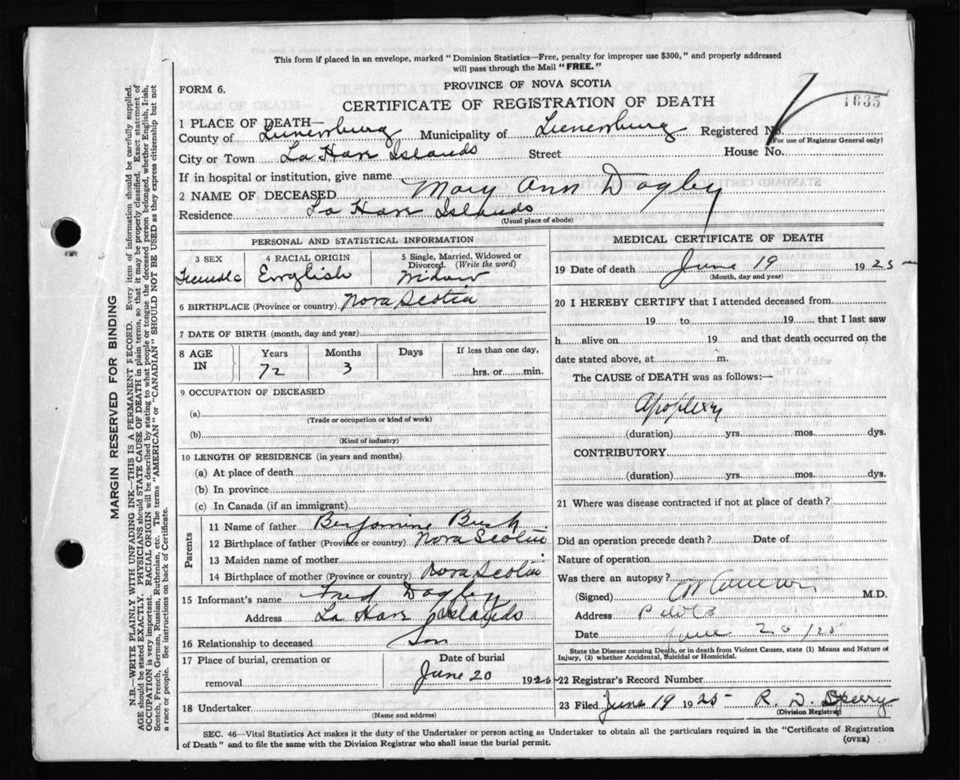 This form if placed in an envelope, marked "Dominion Statistics—Free, penalty for improper use $300," and properly addressed
will pass through the Mail "FREE."
PROVINCE OF NOVA SCOTIA
FORM 6.
CERTIFICATE OF REGISTRATION OF DEATH
1835
1 PLACE OF DEATH—
County of Lunenburg Municipality of Lunenburg Registered No.
(For use of Registrar General only)
City or Town La Have Islands Street House No.
If in hospital or institution, give name
2 NAME OF DECEASED Mary Ann Dagley
Residence La Have Islands
(Usual place of abode)
PERSONAL AND STATISTICAL INFORMATION
3 SEX 4 RACIAL ORIGIN 5 Single, Married, Widowed or
Divorced. (Write the word)
Female English Widow
6 BIRTHPLACE (Province or country) Nova Scotia
7 DATE OF BIRTH (month, day and year)
8 AGE IN Years Months Days If less than one day,
72 3 hrs. or min.
9 OCCUPATION OF DECEASED
(a)
(Trade or occupation or kind of work)
(b)
(Kind of industry)
10 LENGTH OF RESIDENCE (in years and months)
(a) At place of death
(b) In province
(c) In Canada (if an immigrant)
Parents
11 Name of father Benjamine Bush
12 Birthplace of father (Province or country) Nova Scotia
13 Maiden name of mother
14 Birthplace of mother (Province or country) Nova Scotia
15 Informant's name Fred Dagley
Address La Have Islands
16 Relationship to deceased Son
17 Place of burial, cremation or Date of burial
removal June 20 1925
18 Undertaker
(Name and address)
MEDICAL CERTIFICATE OF DEATH
19 Date of death June 19 1925
(Month, day and year)
20 I HEREBY CERTIFY that I attended deceased from
19 to 19 that I last saw
h alive on 19 and that death occurred on the
date stated above, at m.
The CAUSE of DEATH was as follows:—
Apoplexy
(duration) yrs. mos. dys.
CONTRIBUTORY
(duration) yrs. mos. dys.
21 Where was disease contracted if not at place of death?
Did an operation precede death? Date of
Nature of operation
Was there an autopsy?
(Signed) M.D.
Address
Date June 20/25
State the Disease causing Death, or in death from Violent Causes, state (1) Means and Nature of
Injury, (2) whether Accidental, Suicidal or Homicidal.
22 Registrar's Record Number
23 Filed June 19 1925 R. D. Sperry
(Division Registrar)
SEC. 46—Vital Statistics Act makes it the duty of the Undertaker or person acting as Undertaker to obtain all the particulars required in the "Certificate of Registration
of Death" and to file the same with the Division Registrar who shall issue the burial permit. (OVER)
MARGIN RESERVED FOR BINDING
N.B.—WRITE PLAINLY WITH UNFADING INK—THIS IS A PERMANENT RECORD. Every item of information should be carefully supplied.
AGE should be stated EXACTLY. PHYSICIANS should STATE CAUSE OF DEATH in plain terms, so that it may be properly classified. Exact statement of
OCCUPATION is very important. RACIAL ORIGIN will be described by stating to what people or tongue the deceased person belonged, whether English, Irish,
Scotch, French, German, Russian, Ruthenian, etc. The terms "AMERICAN" or "CANADIAN" SHOULD NOT BE USED as they express citizenship but not
a race or people. See instructions on back of Certificate.